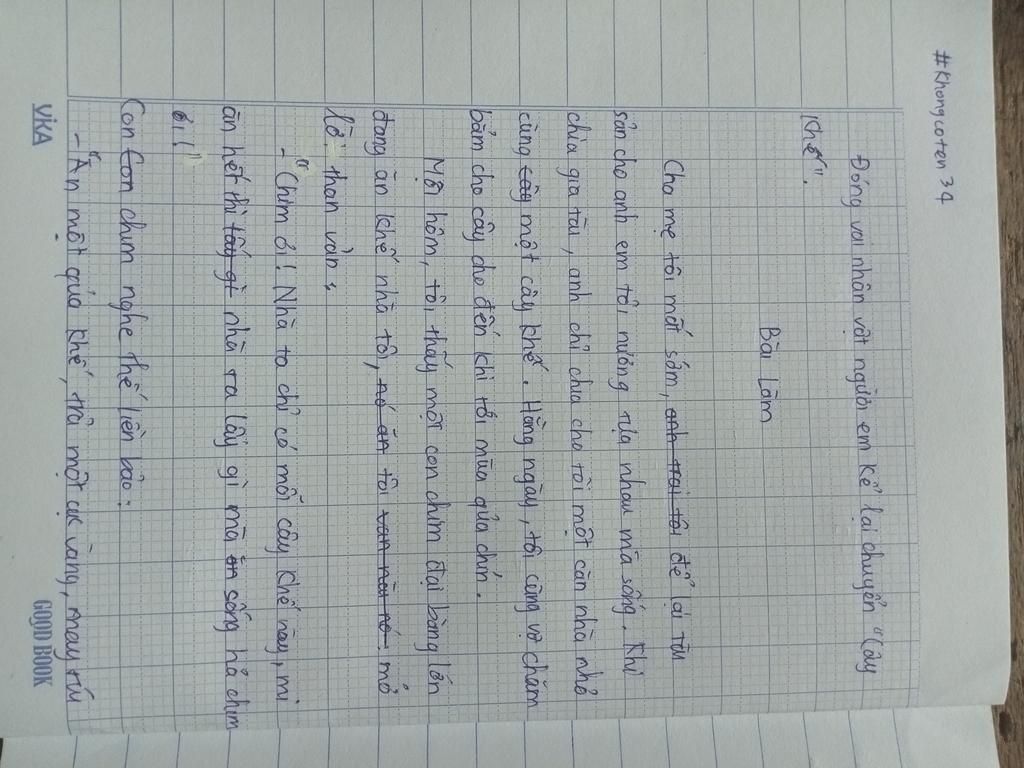 #Khongcoten34
Đóng vai nhân vật người em kể lại chuyển "Cây
Khế".
Bài làm
Cha mẹ tôi mất sớm, anh trai tôi để lại tài
sản cho anh em tôi nương tựa nhau mà sống. Khi
chia gia tài, anh chỉ chia cho tôi một căn nhà nhỏ
cùng cây một cây khế. Hằng ngày, tôi cùng vợ chăm
bẵm cho cây cho đến khi tới mùa quả chín.
Một hôm, tôi thấy một con chim đại bàng lớn
đang ăn khế nhà tôi, nó ăn tôi van nài nó. mở
lời than vản:
- "Chim ơi! Nhà ta chỉ có mỗi cây khế này, mi
ăn hết thì lấy gì nhà ta lấy gì mà ăn sống hả chim
ơi!"
Con Con chim nghe thế liền bảo:
- "Ăn một quả khế, trả một cục vàng, may túi
VIKA
GOOD BOOK